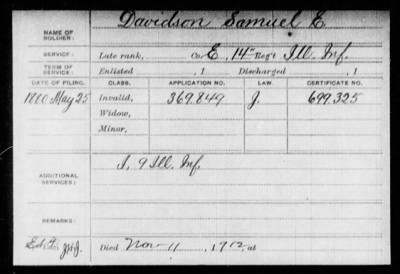 NAME OF SOLDIER: Davidson Samuel E.
SERVICE: Late rank, Co. E, 14" Reg't Ill. Inf.
TERM OF SERVICE: Enlisted , 1 Discharged , 1
DATE OF FILING. CLASS. APPLICATION NO. LAW. CERTIFICATE NO.
1880 May 25 Invalid, 369.849 J. 699.325
Widow,
Minor,
ADDITIONAL SERVICES: I, 9 Ill. Inf.
REMARKS:
Died Nov 11, 1912, at